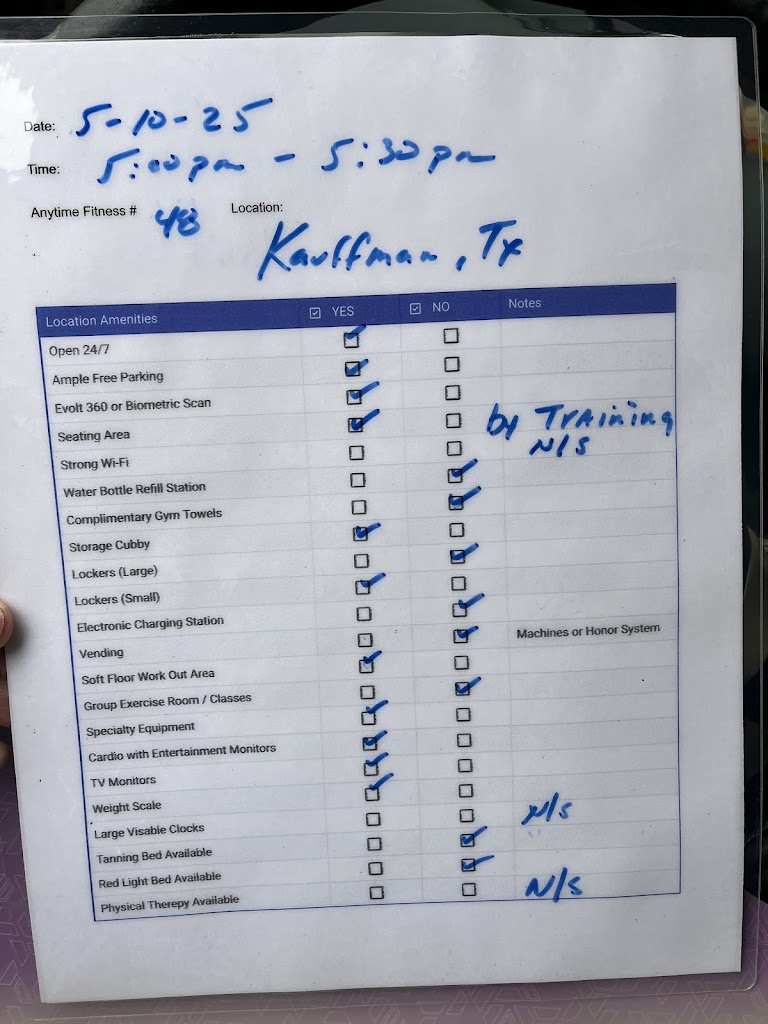 Date: 5-10-25
Time: 5:00pm - 5:30pm
Anytime Fitness # 48 Location:
Kauffman, Tx
Location Amenities YES NO Notes
Open 24/7
Ample Free Parking
Evolt 360 or Biometric Scan
Seating Area by Training
Strong Wi-Fi N/S
Water Bottle Refill Station
Complimentary Gym Towels
Storage Cubby
Lockers (Large)
Lockers (Small)
Electronic Charging Station
Vending Machines or Honor System
Soft Floor Work Out Area
Group Exercise Room / Classes
Specialty Equipment
Cardio with Entertainment Monitors
TV Monitors
Weight Scale
Large Visable Clocks N/S
Tanning Bed Available
Red Light Bed Available
Physical Therepy Available N/S